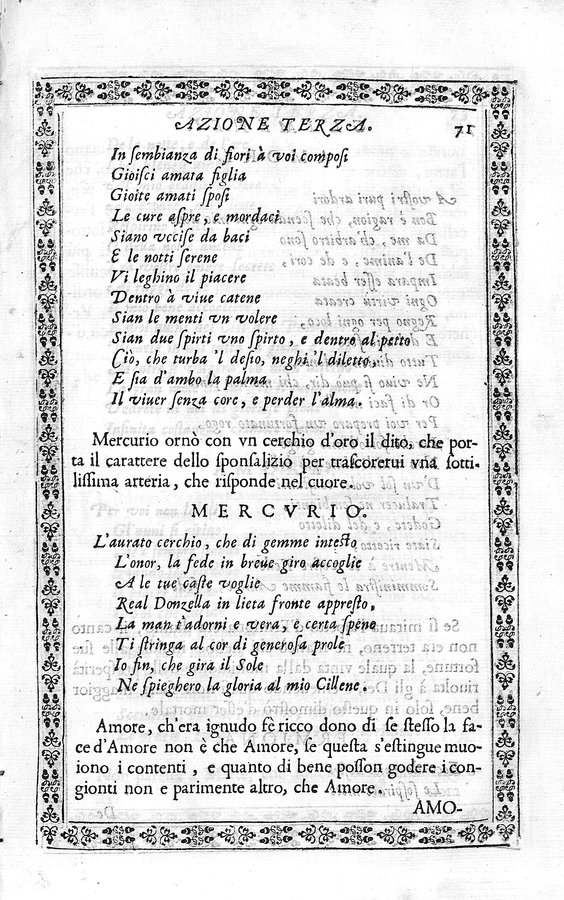 AZIONE TERZA. 71
In ſembianza di fiori à voi compoſi
Gioiſci amata figlia
Gioite amati ſpoſi
Le cure aſpre, e mordaci
Siano vcciſe da baci
E le notti ſerene
Vi leghino il piacere
Dentro à viue catene
Sian le menti vn volere
Sian due ſpirti vno ſpirto, e dentro al petto
Ciò, che turba 'l deſio, neghi 'l diletto,
E ſia d'ambo la palma
Il viuer ſenza core, e perder l'alma.
Mercurio ornò con vn cerchio d'oro il dito, che por-
ta il carattere dello ſponſalizio per traſcoretui vna ſotti-
liſſima arteria, che riſponde nel cuore.
MERCVRIO.
L'aurato cerchio, che di gemme inteſto
L'onor, la fede in breue giro accoglie
A le tue caſte voglie
Real Donzella in lieta fronte appreſto,
La man t'adorni e vera, e certa ſpene
Ti ſtringa al cor di generoſa prole
Io fin, che gira il Sole
Ne ſpieghero la gloria al mio Cillene.
Amore, ch'era ignudo fè ricco dono di ſe ſteſſo la fa-
ce d'Amore non è che Amore, ſe queſta s'eſtingue muo-
iono i contenti, e quanto di bene poſſon godere i con-
gionti non e parimente altro, che Amore.
AMO-